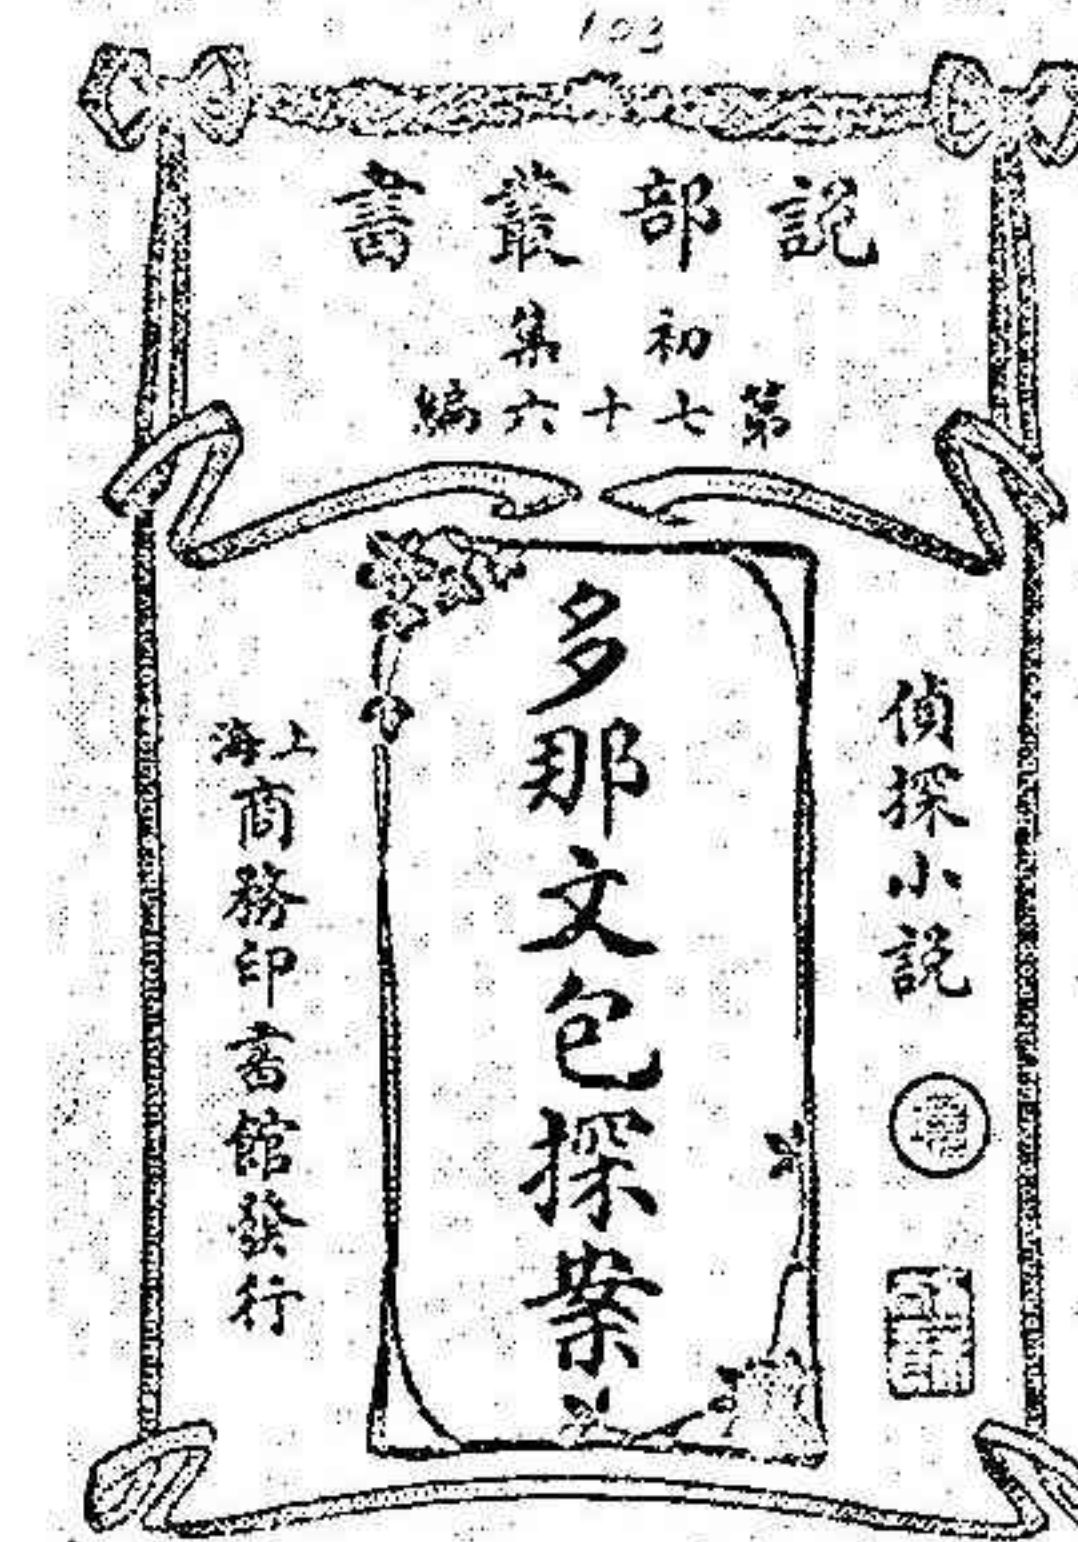 103
說部叢書
初集
第七十六編
偵探小說
多那文包探案
上海
商務印書館發行